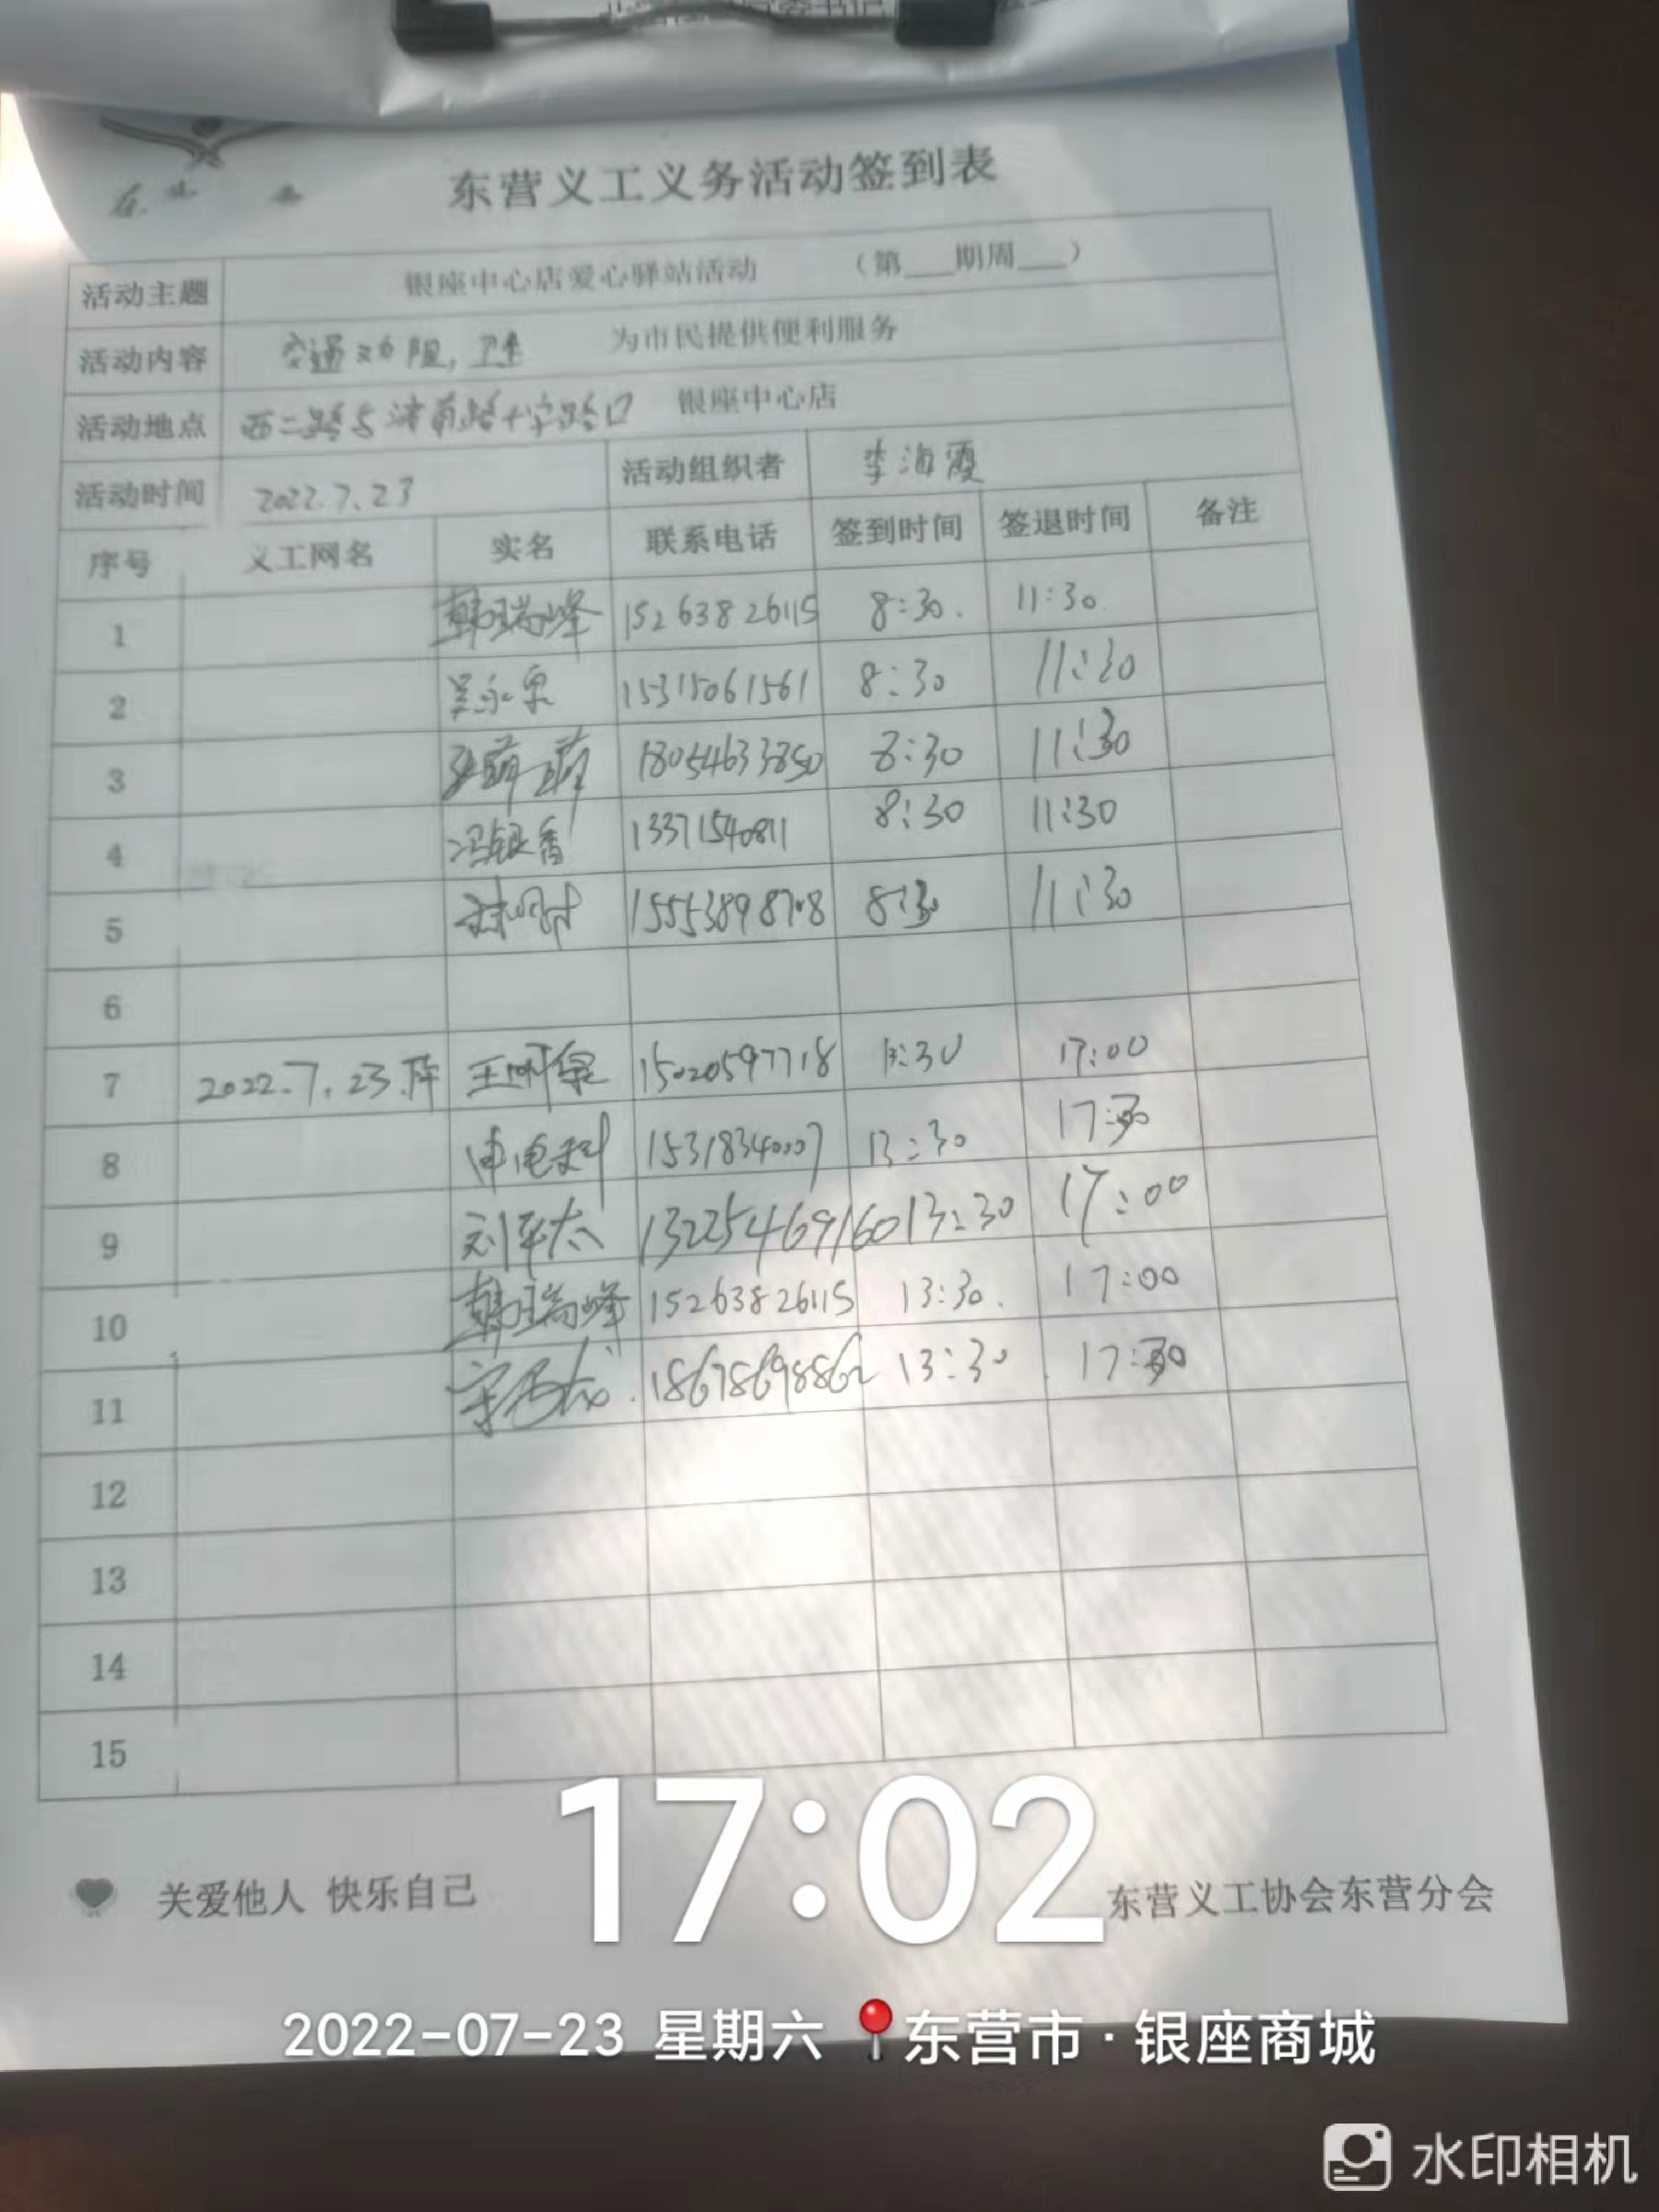 东营义工义务活动签到表
活动主题 银座中心店爱心驿站活动 （第___期周___）
活动内容 交通劝阻，卫生 为市民提供便利服务
活动地点 西二路与济南路十字路口 银座中心店
活动时间 2022.7.23 活动组织者 李海霞
序号 义工网名 实名 联系电话 签到时间 签退时间 备注
1 韩瑞峰 15263826115 8:30. 11:30.
2 吴永泉 15315061561 8:30 11:30
3 张萌萌 18054633850 8:30 11:30
4 冯银香 13371540811 8:30 11:30
5 15553898708 8:30 11:30
6
7 2022.7.23. 15020597718 13:30 17:00
8 15318340007 13:30
9 刘平太 13225469160 13:30 17:00
10 韩瑞峰 15263826115 13:30. 17:00
11 18678698862 13:30
12
13
14
15
17:02
关爱他人 快乐自己 东营义工协会东营分会
2022-07-23 星期六 东营市·银座商城
水印相机